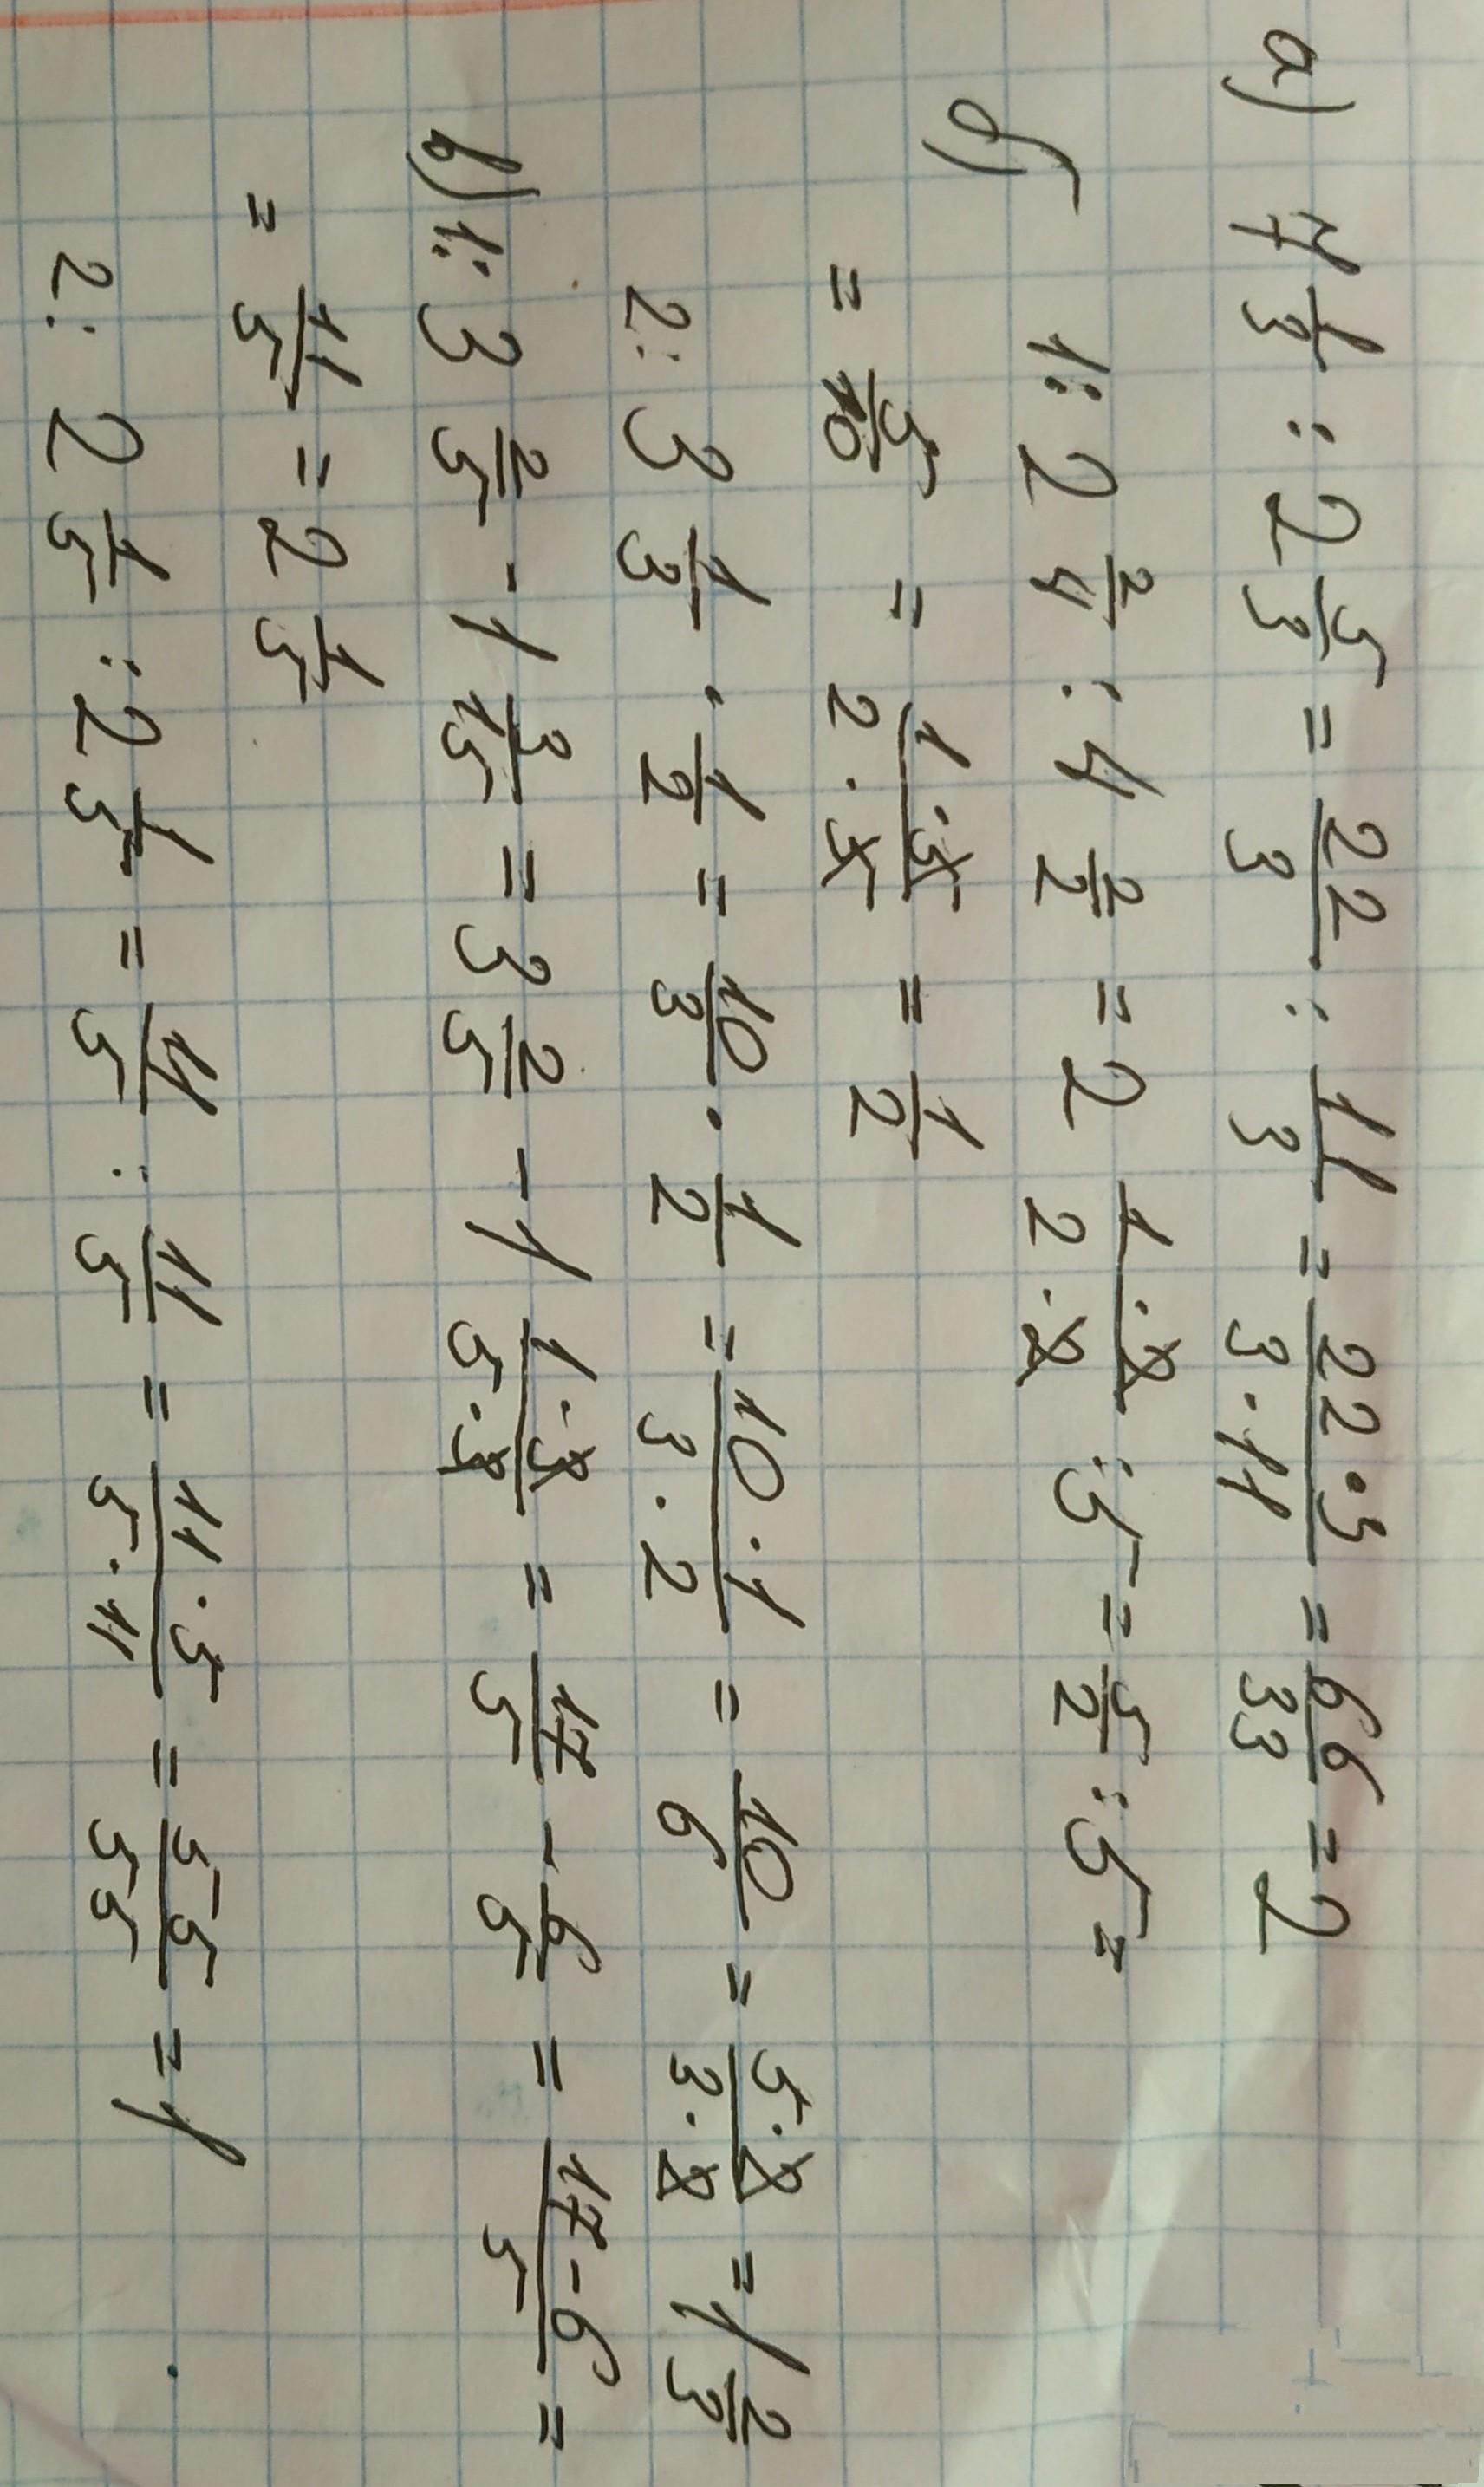 а) 7 1/3 : 2 5/3 = 22/3 : 11/3 = 22·3/3·11 = 66/33 = 2
б) 1: 2 2/4 : 4 2/2 = 2 1·2/2·2 : 5 = 5/2 : 5 =
= 5/10 = 1·5/2·5 = 1/2
2: 3 1/3 · 1/2 = 10/3 · 1/2 = 10·1/3·2 = 10/6 = 5·2/3·2 = 1 2/3
в) 1: 3 2/5 - 1 3/15 = 3 2/5 - 1 1·3/5·3 = 17/5 - 6/5 = 17-6/5 =
= 11/5 = 2 1/5
2: 2 1/5 : 2 1/5 = 11/5 : 11/5 = 11·5/5·11 = 55/55 = 1